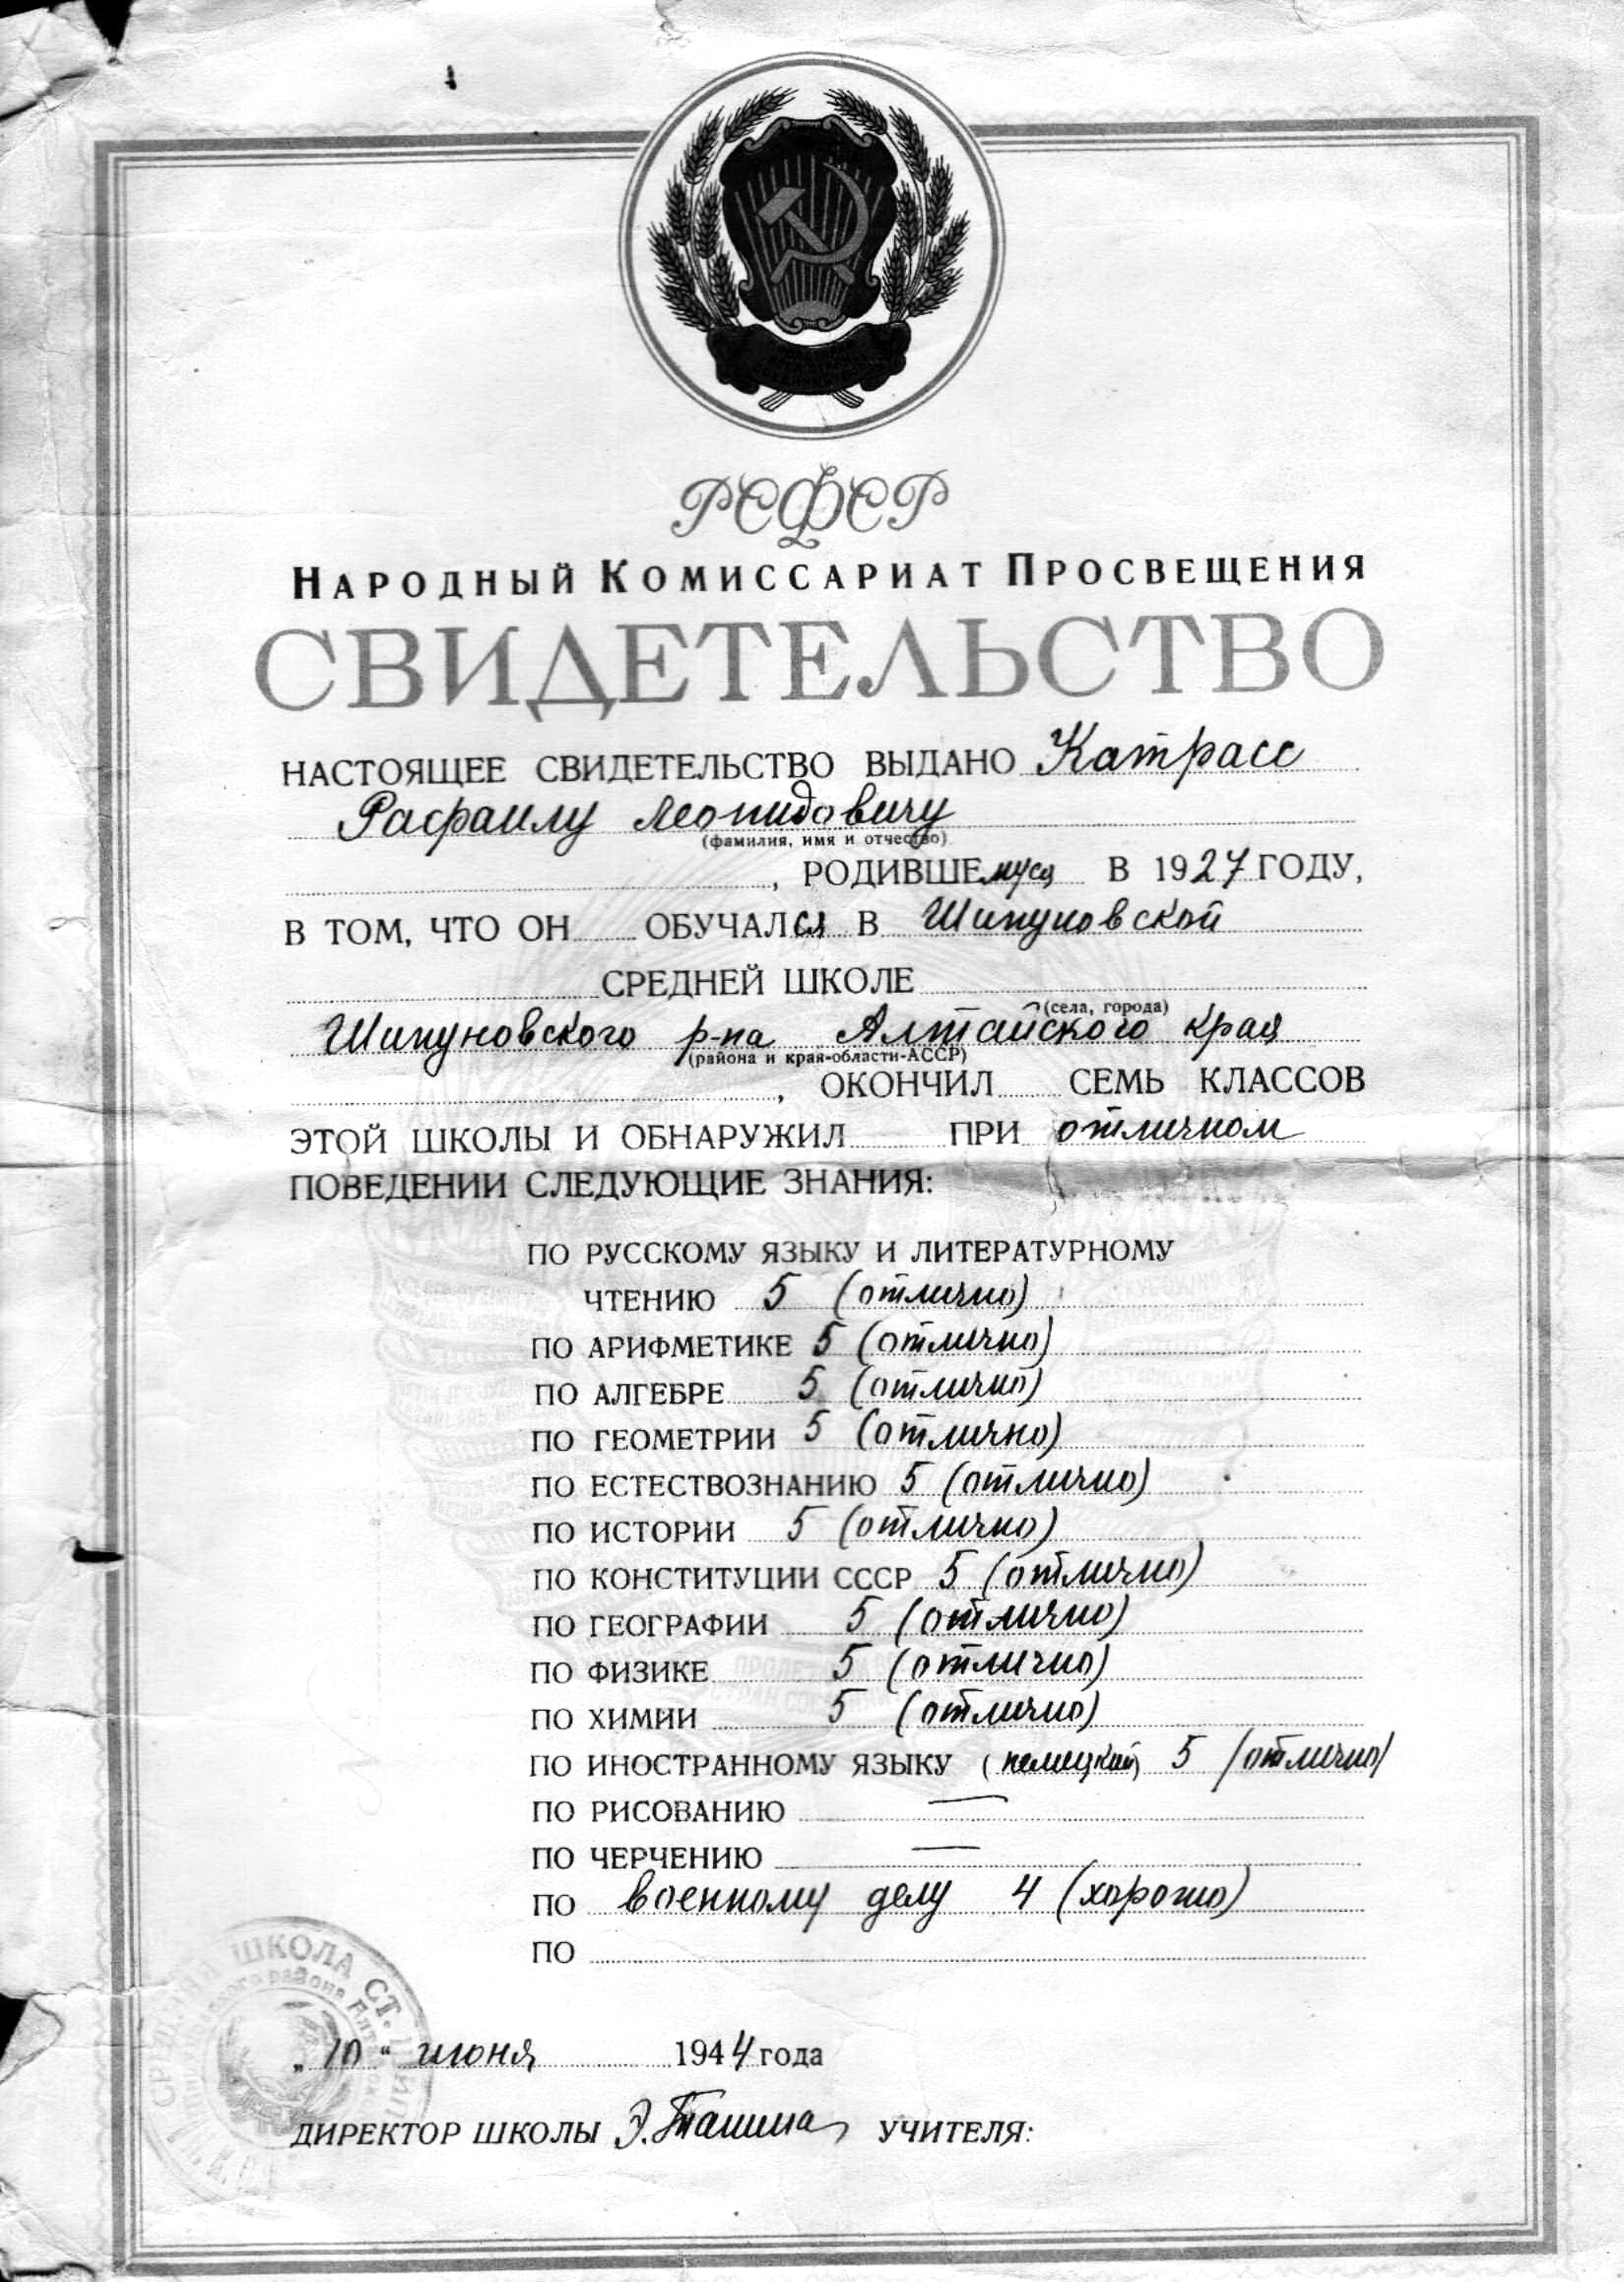 РСФСР
НАРОДНЫЙ КОМИССАРИАТ ПРОСВЕЩЕНИЯ
СВИДЕТЕЛЬСТВО
НАСТОЯЩЕЕ СВИДЕТЕЛЬСТВО ВЫДАНО Катрасс
Расфаилу Леонидовичу
(фамилия, имя и отчество)
, РОДИВШЕмуся В 1927 ГОДУ,
В ТОМ, ЧТО ОН ОБУЧАЛся В Шипуновской
СРЕДНЕЙ ШКОЛЕ
(села, города)
Шипуновского р-на Алтайского края
(района и края-области-АССР)
, ОКОНЧИЛ СЕМЬ КЛАССОВ
ЭТОЙ ШКОЛЫ И ОБНАРУЖИЛ ПРИ отличном
ПОВЕДЕНИИ СЛЕДУЮЩИЕ ЗНАНИЯ:
ПО РУССКОМУ ЯЗЫКУ И ЛИТЕРАТУРНОМУ
ЧТЕНИЮ 5 (отлично)
ПО АРИФМЕТИКЕ 5 (отлично)
ПО АЛГЕБРЕ 5 (отлично)
ПО ГЕОМЕТРИИ 5 (отлично)
ПО ЕСТЕСТВОЗНАНИЮ 5 (отлично)
ПО ИСТОРИИ 5 (отлично)
ПО КОНСТИТУЦИИ СССР 5 (отлично)
ПО ГЕОГРАФИИ 5 (отлично)
ПО ФИЗИКЕ 5 (отлично)
ПО ХИМИИ 5 (отлично)
ПО ИНОСТРАННОМУ ЯЗЫКУ (немецкий) 5 (отлично)
ПО РИСОВАНИЮ —
ПО ЧЕРЧЕНИЮ —
ПО военному делу 4 (хорошо)
ПО
ШКОЛА СТ.
района
„10“ июня 1944 года
ДИРЕКТОР ШКОЛЫ УЧИТЕЛЯ: